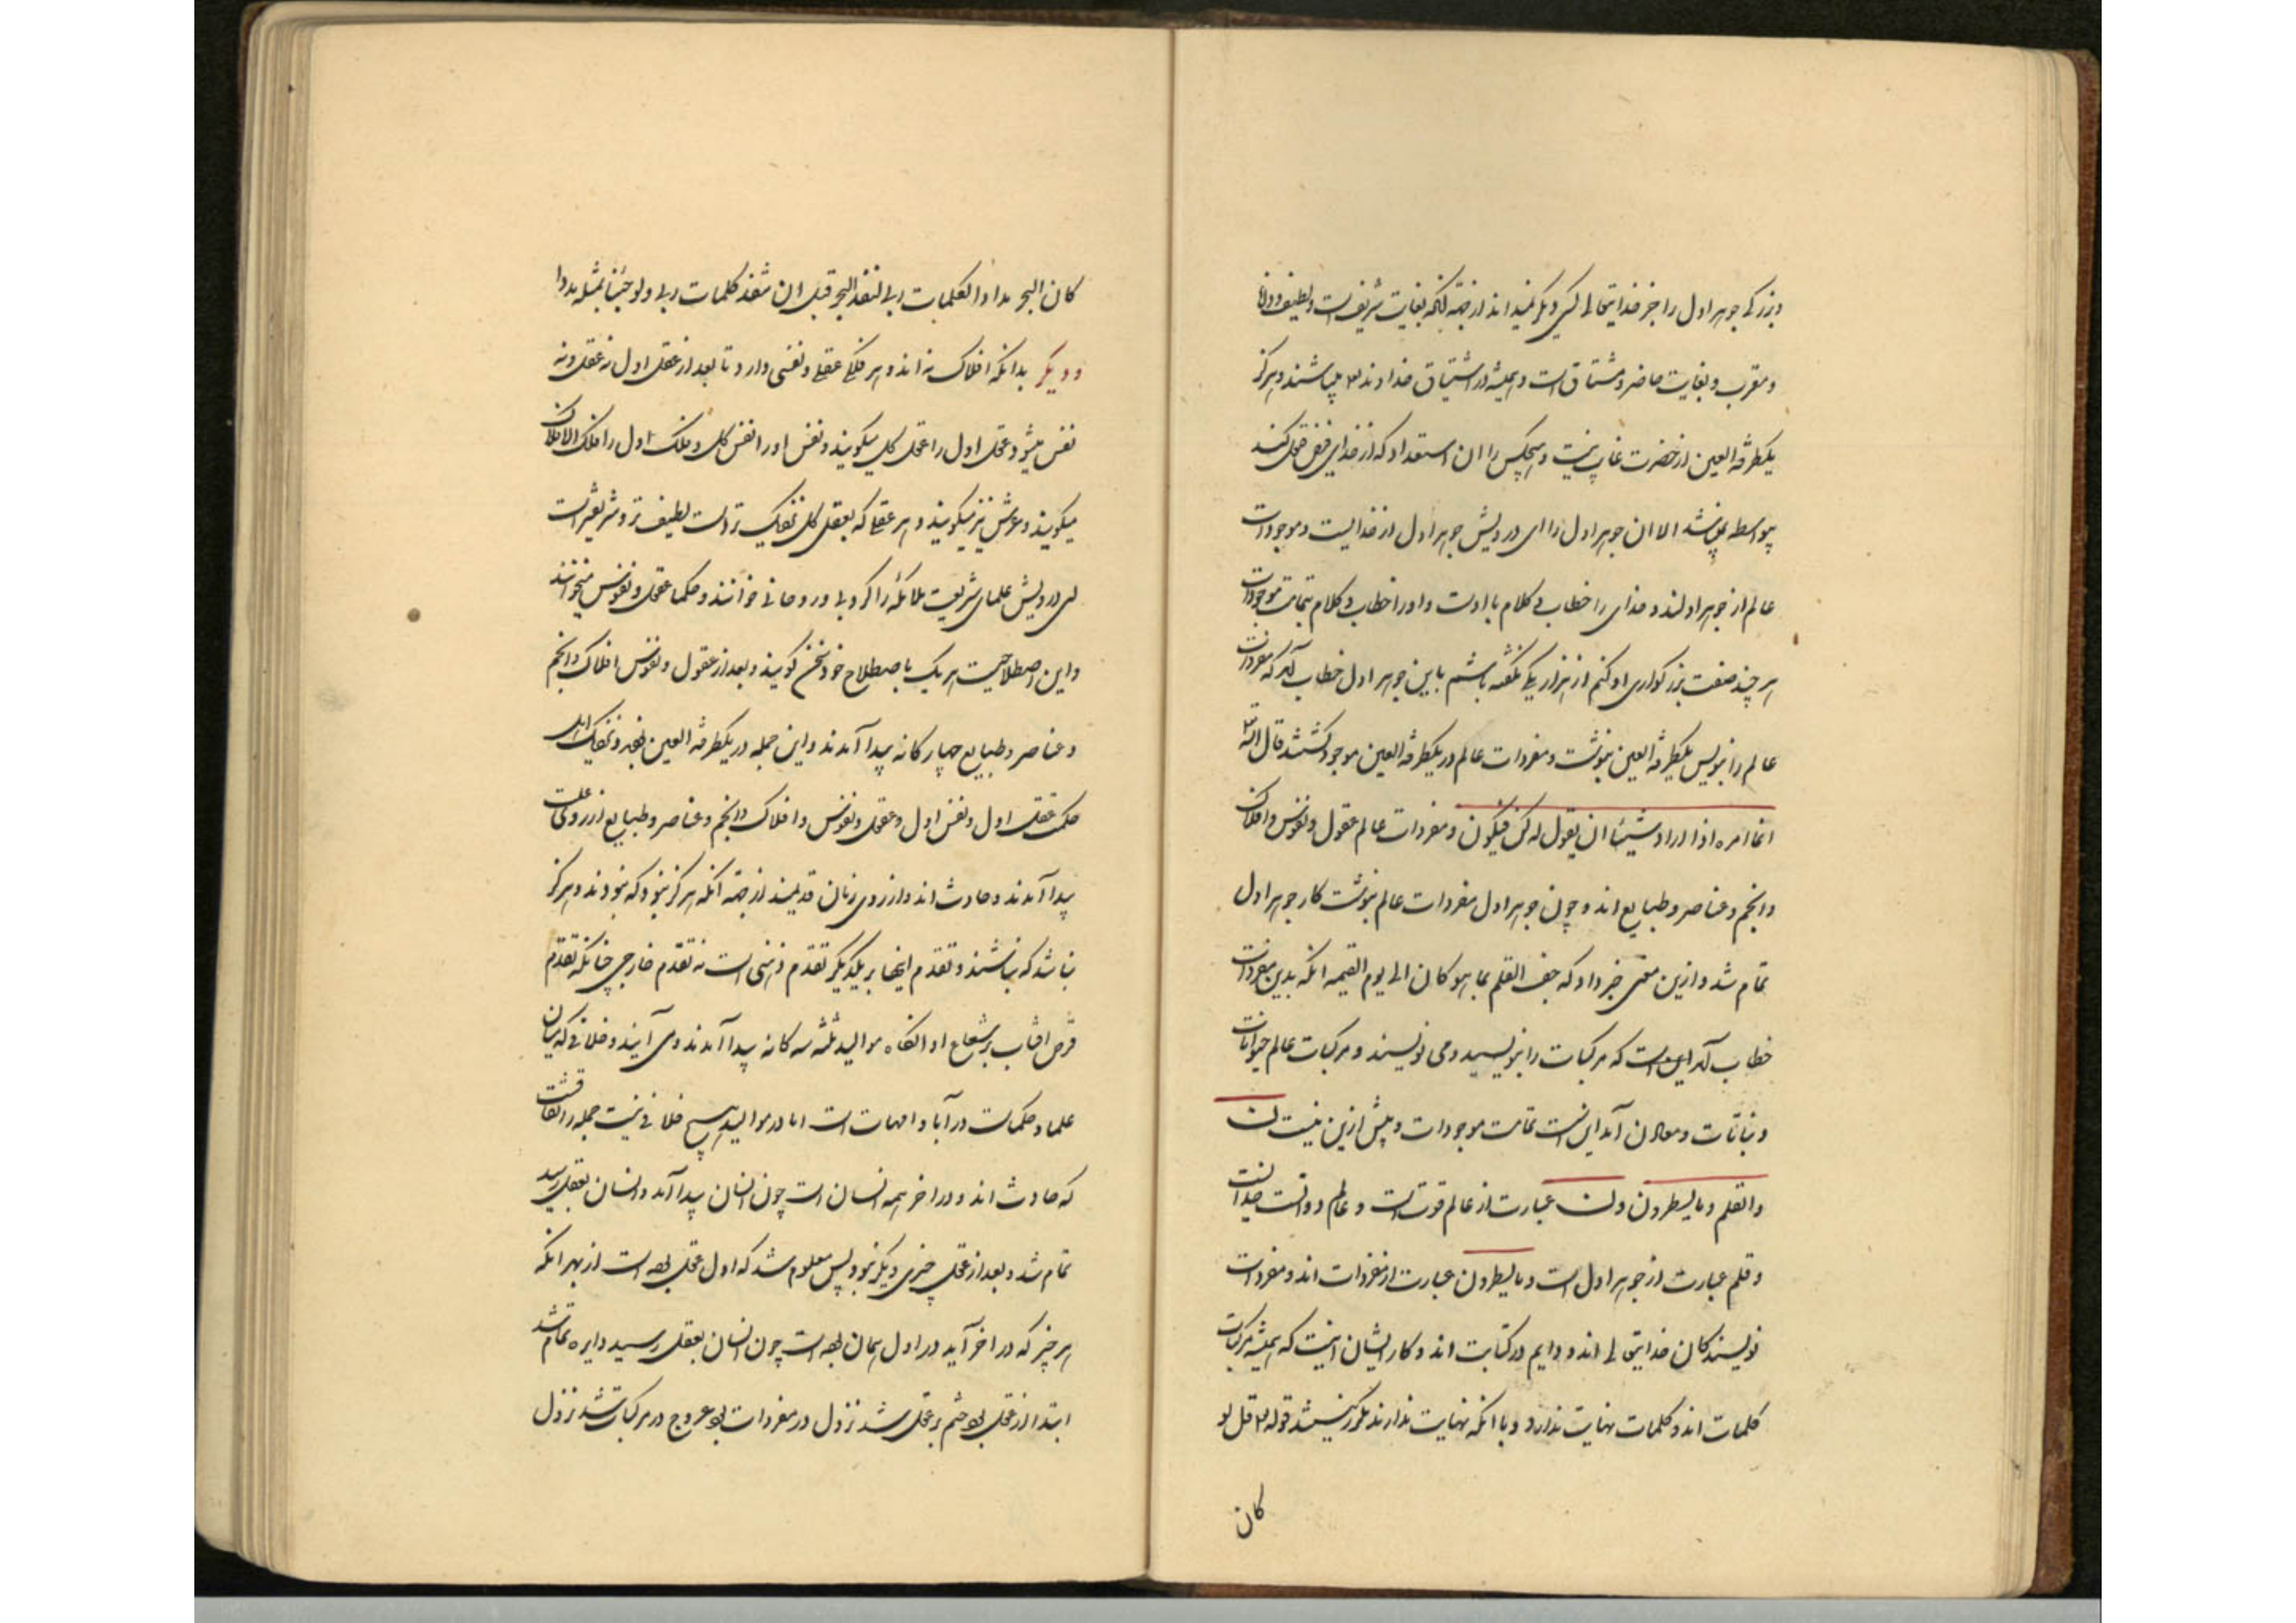 و بزرگی جوهر اول را جز خدایتعالی کسی دیگر نمیداند از جهة آنکه بغایت شریف است و لطیف و دانا
و مقرب و بغایت حاضر و مشتاق است و همیشه در اشتیاق خداوند تع میباشند و هرگز
یکطرفة العین از حضرت غایب نیست و هیچکس را ان استعداد که از خدای فیض قبول کند
بیواسطه نباشد الا ان جوهر اول را ای درویش جوهر اول از خدایست و موجودات
عالم از جوهر اولند و خدای را خطاب و کلام با اوست و او را خطاب و کلام بتمامت موجودات
هر چند صفت بزرگواری او کنم از هزار یکی نگفته باشم باین جوهر اول خطاب آمد که مفردات
عالم را بنویس بیکطرفة العین بنوشت و مفردات عالم در یکطرفة العین موجود گشتند قال الله تع
انما امره اذا اراد شیئا ان یقول له کن فیکون و مفردات عالم عقول و نفوس و افلاک
و انجم و عناصر و طبایع اند و چون جوهر اول مفردات عالم بنوشت کار جوهر اول
تمام شد و ازین معنی خبر داد که جف القلم بما هو کان الی یوم القیمه انکه بدین مفردات
خطاب آمد این است که مرکبات را بنویسید و می نویسند و مرکبات عالم حیوانات
و نباتات و معادن آمد این است تمامت موجودات و بیش ازین نیست ن
والقلم و ما یسطرون و ن عبارت از عالم قوت است و عالم دوات خداست
و قلم عبارت از جوهر اول است و ما یسطرون عبارت از مفردات اند و مفردات
نویسندگان خدایتعالی اند و دایم در کتابت اند و کار ایشان اینست که همیشه مرکبات
کلمات اند و کلمات نهایت ندارد و با انکه نهایت ندارند مکرر نیستند قوله تع قل لو
کان
کان البحر مدادا لکلمات ربی لنفد البحر قبل ان تنفد کلمات ربی ولو جئنا بمثله مددا
و دیگر بدانکه افلاک نه اند و هر فلکی عقلی و نفسی دارد تا بعد از عقل اول نه عقل و نه
نفس میشود و عقل اول را عقل کل میگویند و نفس او را نفس کل و فلک اول را فلک الافلاک
میگویند و عرش نیز میگویند و هر عقلی که بعقل کل نزدیک تر است لطیف تر و شریفتر است
ای درویش علمای شریعت ملائکه را کروبی و روحانی خوانند و حکما عقول و نفوس میخوانند
و این اصطلاحیست هر یک باصطلاح خود سخن گویند و بعد از عقول و نفوس افلاک و انجم
و عناصر و طبایع چهارگانه پیدا آمدند و این جمله در یکطرفة العین بود و نزدیک اهل
حکمت عقل اول و نفس اول و عقول و نفوس و افلاک و انجم و عناصر و طبایع از روی علت
پیدا آمدند و حادث اند و از روی زمان قدیمند از جهة انکه هرگز نبود که نبودند و هرگز
نباشد که نباشند و تقدم اینها بر یکدیگر تقدم ذهنی است نه تقدم خارجی چنانکه تقدم
قرص افتاب بر شعاع او انگاه موالید ثلثه سه گانه پیدا آمدند و می آیند و خلافی که میان
علما و حکماست در آبا و امهات است اما در موالید هیچ خلافی نیست جمله را اتفاقست
که حادث اند و در اخر همه انسان است چون انسان پیدا آمد و انسان بعقل رسید
تمام شد و بعد از عقل چیزی دیگر نبود پس معلوم شد که اول عقل بوده است از بهر انکه
هر چیز که در اخر آید در اول همان بوده است چون انسان بعقل رسید دایره تمام شد
ابتدا از عقل بود ختم بر عقل شد نزول در مفردات بود عروج در مرکبات شد نزول